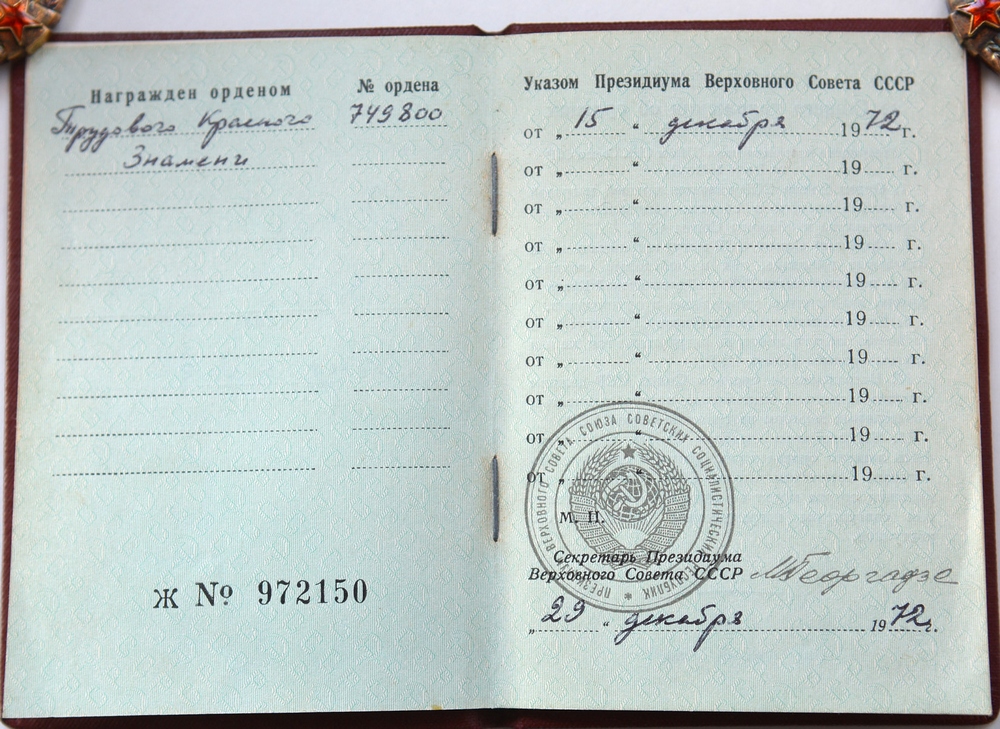 Награжден орденом
№ ордена
Трудового Красного
749800
Знамени
Ж № 972150
Указом Президиума Верховного Совета СССР
от „ 15 “ декабря 1972 г.
от „ “ 19 г.
от „ “ 19 г.
от „ “ 19 г.
от „ “ 19 г.
от „ “ 19 г.
от „ “ 19 г.
от „ “ 19 г.
от „ “ 19 г.
от „ “ 19 г.
ПРЕЗИДИУМ ВЕРХОВНОГО СОВЕТА СОЮЗА СОВЕТСКИХ СОЦИАЛИСТИЧЕСКИХ РЕСПУБЛИК
М. П.
Секретарь Президиума
Верховного Совета СССР МГеоргадзе
„ 29 “ декабря 1972 г.